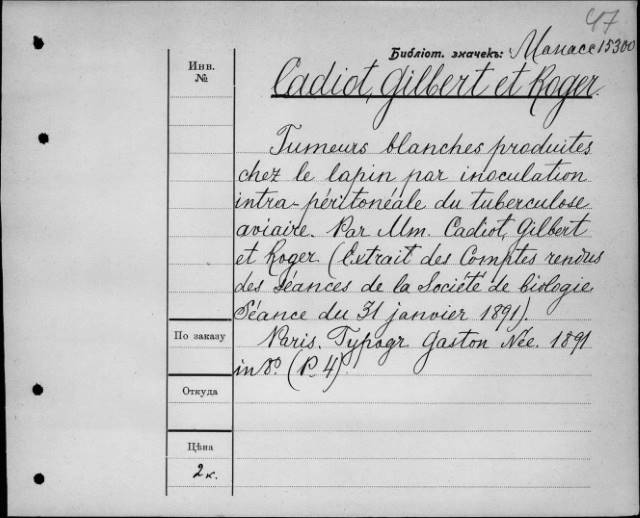 47
Библіот. значекъ: Манасе 15300
Инв.
№
Cadiot, Gilbert et Roger.
Tumeurs blanches produites
chez le lapin par inoculation
intra-péritonéale du tuberculose
aviaire. Par Mm. Cadiot, Gilbert
et Roger (Extrait des Comptes rendus
des séances de la Société de biologie
Séance du 31 janvier 1891).
По заказу
Paris. Typogr. Gaston Née. 1891
in 8º. (P. 4).
Откуда
Цѣна
2 к.